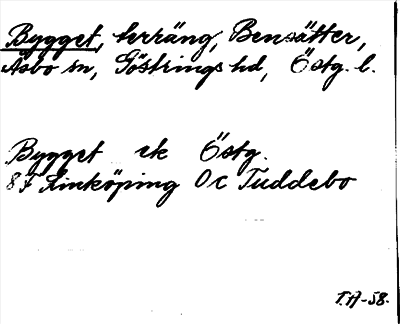 Bygget, terräng, Bensätter,
Åsbo sn, Göstrings hd, Östg. l.
Bygget ek Östg.
8F Linköping 0c Tuddebo
T.A-58.